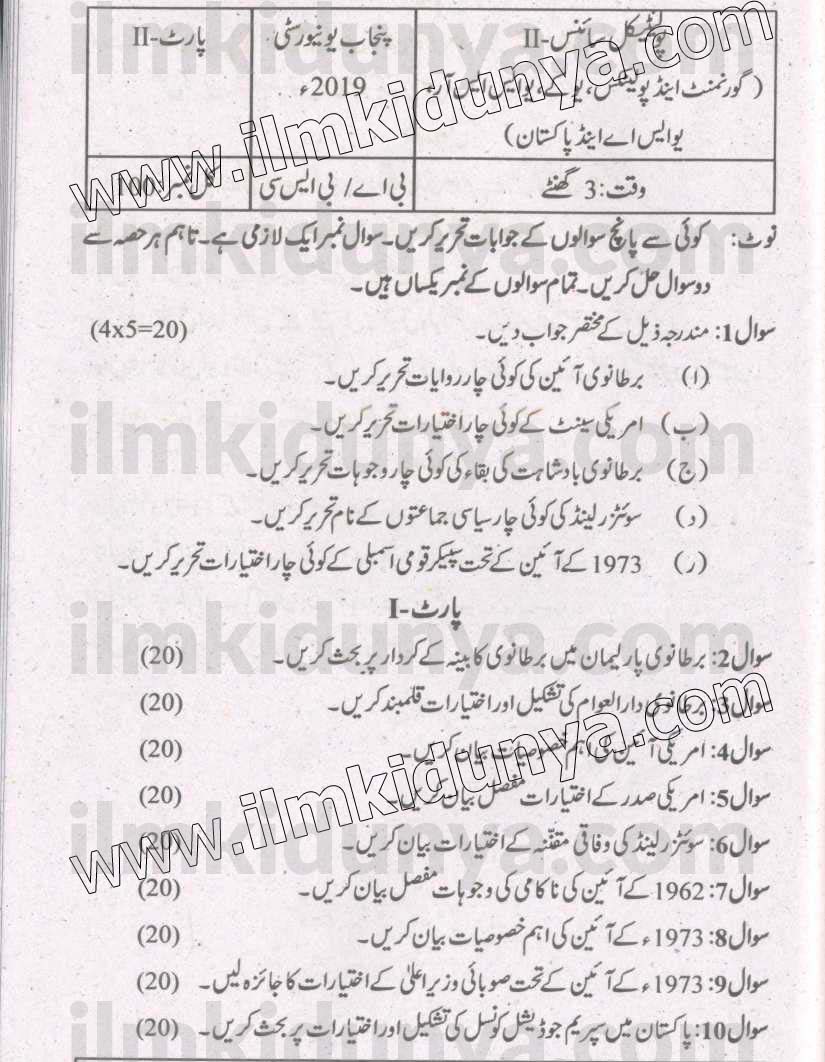 پولیٹیکل سائنس-II
پنجاب یونیورسٹی
پارٹ-II
(گورنمنٹ اینڈ پولیٹکس، یو کے، یو ایس ایس آر،
2019ء
یو ایس اے اینڈ پاکستان)
وقت: 3 گھنٹے
بی اے / بی ایس سی
کل نمبر: 100
نوٹ: کوئی سے پانچ سوالوں کے جوابات تحریر کریں۔ سوال نمبر ایک لازمی ہے۔ تاہم ہر حصہ سے
دو سوال حل کریں۔ تمام سوالوں کے نمبر یکساں ہیں۔
سوال 1: مندرجہ ذیل کے مختصر جواب دیں۔ (4x5=20)
(ا) برطانوی آئین کی کوئی چار روایات تحریر کریں۔
(ب) امریکی سینٹ کے کوئی چار اختیارات تحریر کریں۔
(ج) برطانوی بادشاہت کی بقاء کی کوئی چار وجوہات تحریر کریں۔
(د) سوئٹزرلینڈ کی کوئی چار سیاسی جماعتوں کے نام تحریر کریں۔
(ر) 1973 کے آئین کے تحت سپیکر قومی اسمبلی کے کوئی چار اختیارات تحریر کریں۔
پارٹ-I
سوال 2: برطانوی پارلیمان میں برطانوی کابینہ کے کردار پر بحث کریں۔ (20)
سوال 3: برطانوی دارالعوام کی تشکیل اور اختیارات قلمبند کریں۔ (20)
سوال 4: امریکی آئین کی اہم خصوصیات بیان کریں۔ (20)
سوال 5: امریکی صدر کے اختیارات مفصل بیان کریں۔ (20)
سوال 6: سوئٹزرلینڈ کی وفاقی مقننہ کے اختیارات بیان کریں۔ (20)
سوال 7: 1962 کے آئین کی ناکامی کی وجوہات مفصل بیان کریں۔ (20)
سوال 8: 1973ء کے آئین کی اہم خصوصیات بیان کریں۔ (20)
سوال 9: 1973ء کے آئین کے تحت صوبائی وزیر اعلیٰ کے اختیارات کا جائزہ لیں۔ (20)
سوال 10: پاکستان میں سپریم جوڈیشل کونسل کی تشکیل اور اختیارات پر بحث کریں۔ (20)
www.ilmkidunya.com
www.ilmkidunya.com
ilmkidunya.com
ilmkidunya.com
ilmkidunya.com
ilmkidunya.com
ilmkidunya.com
ilmkidunya.com